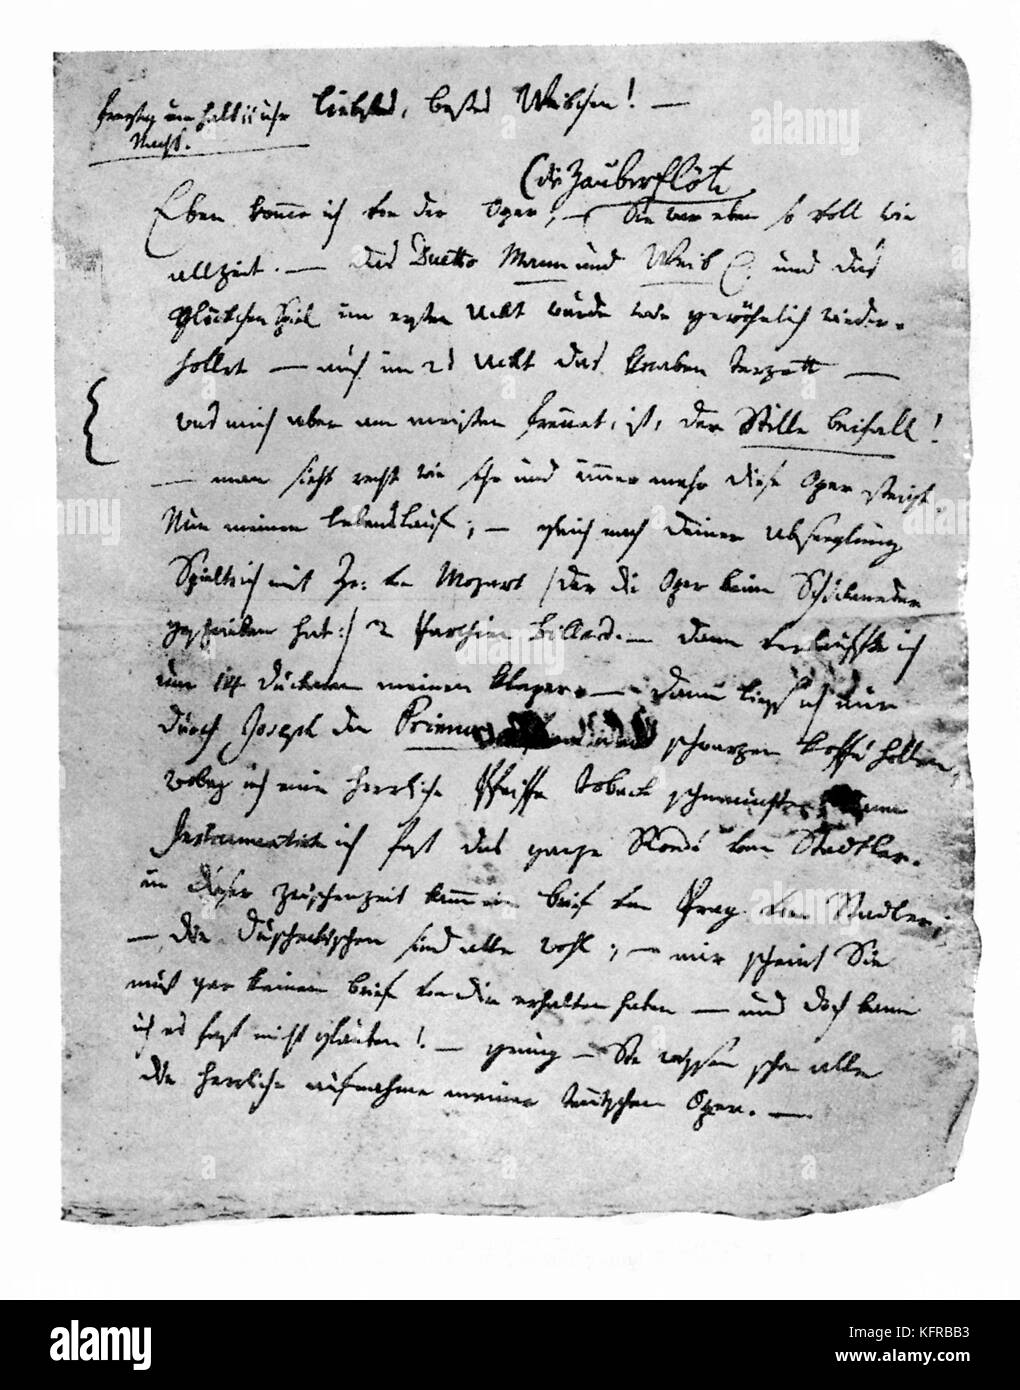 freytag um halb 11 uhr liebstes, bestes Weibchen! —
Nachts.
(die Zauberflöte
Eben komme ich von der Oper; — Sie war eben so voll wie
allzeit. — das Duetto Mann und Weib etc: und das
Glöckchen Spiel im ersten Ackt wurde wie gewöhnlich wieder-
hollet — auch im 2t Ackt das knaben Terzett —
was mich aber am meisten freuet, ist, der Stille beifall!
— man sieht recht wie sehr und immer mehr diese Oper steigt.
Nun meinen lebenslauf; — gleich nach Deiner Abseeglung
Spielte ich mit Hr: von Mozart /: der die Oper beim Schickaneder
geschrieben hat :/ 2 Parthien Billard. — dann verkauffte ich
um 14 duckaten meinen kleper. — dann liess ich mir
durch Joseph den Primus schwarzen koffé hollen,
wobey ich eine herrliche Pfeiffe toback schmauchte; dann
Instrumentirte ich fast das ganze Rondó vom Stadtler.
in dieser zwischenzeit kamm ein brief von Prag vom Stadler;
— die Duscheckischen sind alle wohl; — mir scheint Sie
muß gar keinen brief von dir erhalten haben — und doch kann
ich es fast nicht glauben! — genug — Sie wissen schon alle
die herrliche aufnahme meiner teutschen Oper. —
alamy
a
alamy
Image ID: KFRBB3
www.alamy.com